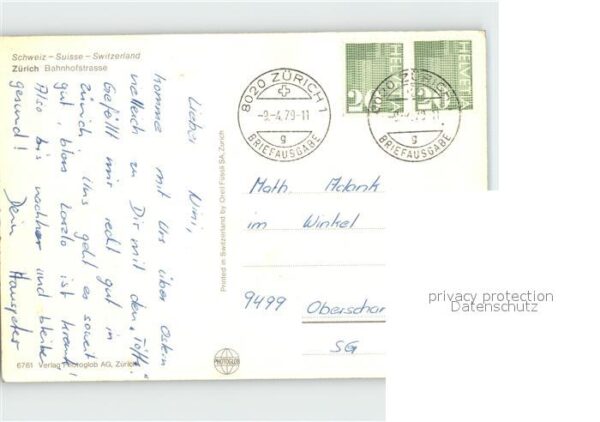 Schweiz – Suisse – Switzerland
Zürich Bahnhofstrasse
Lieber Nini,
komme mit Urs über Ostern
vielleich zu Dir mit den „Töffs".
Gefällt mir recht gut in
Zürich. Uns geht es soweit
gut, bloss Laszlo ist krank!
Also bis nachher und bleibe
gesund! Dein Hanspeter
6761 Verlag Photoglob AG, Zürich
Printed in Switzerland by Orell Füssli SA, Zurich
PHOTOGLOB
HELVETIA
20
HELVETIA
20
8020 ZÜRICH 1
-9.-4.79-11
BRIEFAUSGABE
9
8020 ZÜRICH 1
BRIEFAUSGABE
9
Math. Adank
im Winkel
9499 Oberschan
SG
privacy protection
Datenschutz